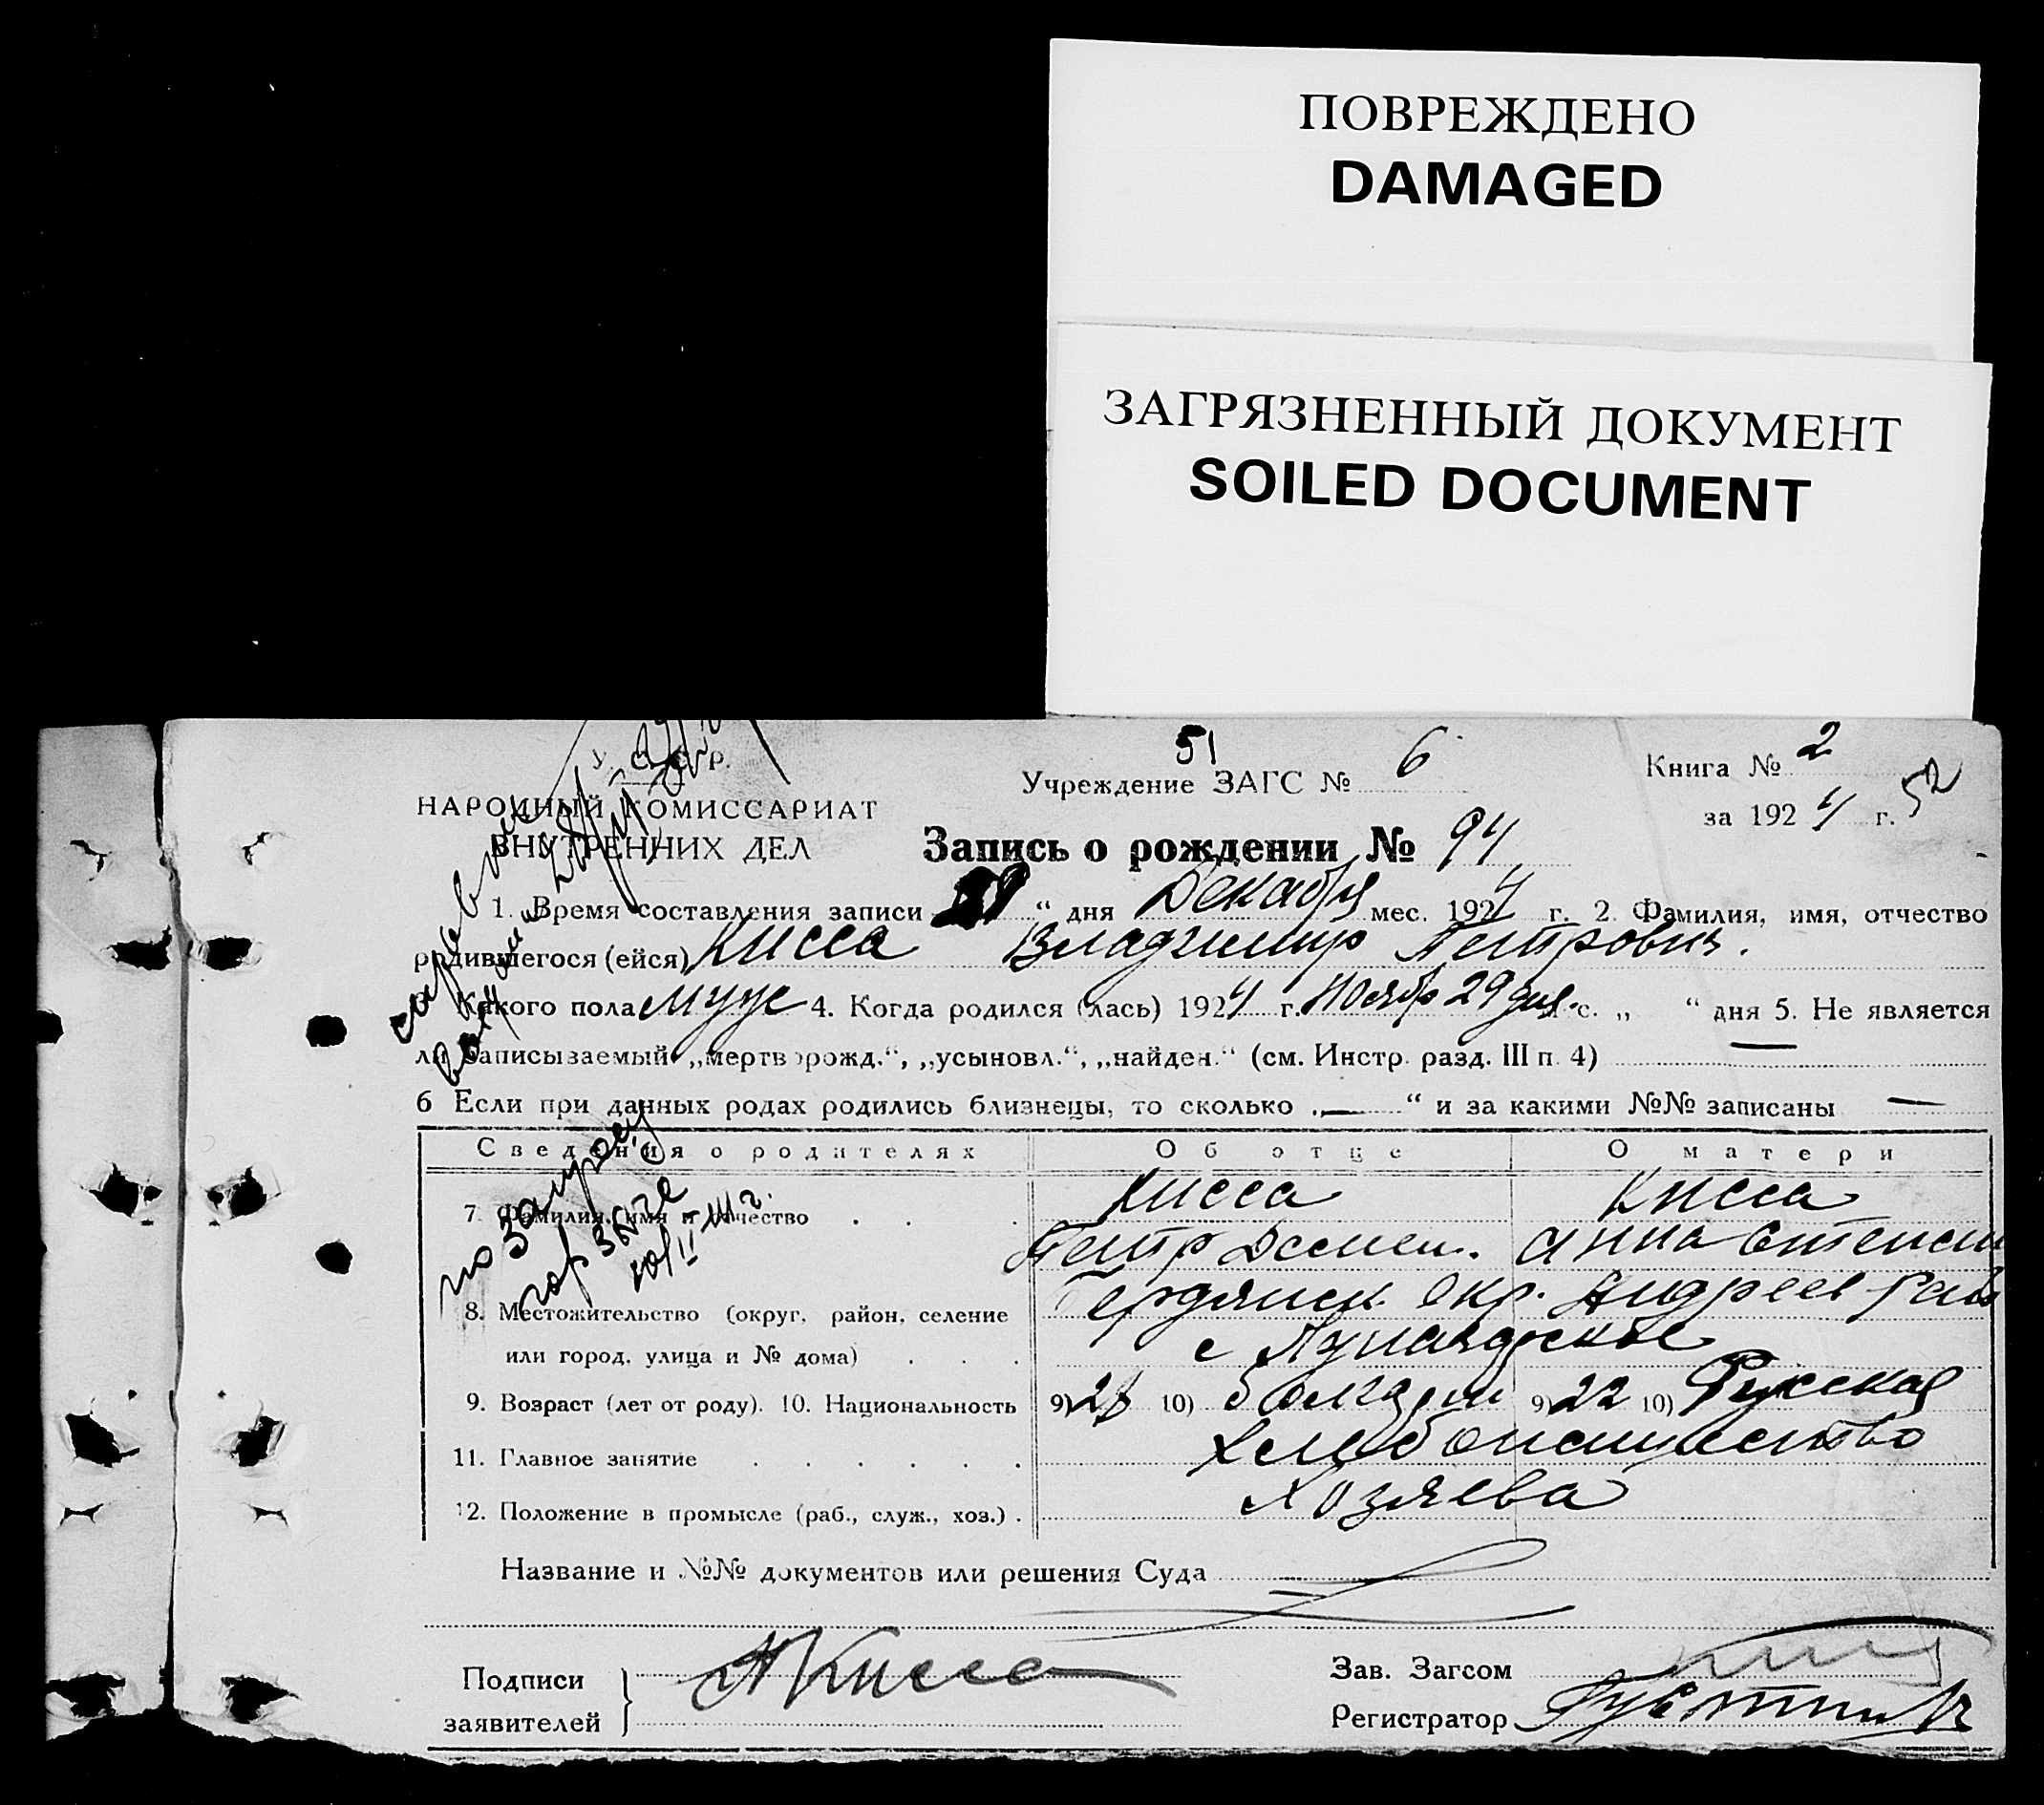 ПОВРЕЖДЕНО
DAMAGED
ЗАГРЯЗНЕННЫЙ ДОКУМЕНТ
SOILED DOCUMENT
У. С. С. Р.
НАРОДНЫЙ КОМИССАРИАТ
ВНУТРЕННИХ ДЕЛ
51
Учреждение ЗАГС № 6
Книга № 2
за 1924 г. 52
Запись о рождении № 94
1. Время составления записи “ дня Декабря мес. 1924 г. 2. Фамилия, имя, отчество
родившегося (ейся) Кисса Владимир Петрович.
Какого пола муж 4. Когда родился (лась) 1924 г. Ноябр 29 дня с. „ “ дня 5. Не является
ли записываемый „мертворожд.“, „усыновл.“, „найден.“ (см. Инстр. разд. III п. 4) —
6 Если при данных родах родились близнецы, то сколько „—“ и за какими №№ записаны —
Сведения о родителях Об отце О матери
7. Фамилия, имя и отчество Кисса Кисса
Петр Анна
8. Местожительство (округ, район, селение Бердянск. окр. Андреев
или город, улица и № дома) с
9. Возраст (лет от роду). 10. Национальность 9) 10) болгарин 9) 22 10) Русская
11. Главное занятие Хлебопашество
12. Положение в промысле (раб., служ., хоз.) Хозяева
Название и №№ документов или решения Суда
Подписи заявителей АКисса
Зав. Загсом
Регистратор
по запросу
гор ЗАГС